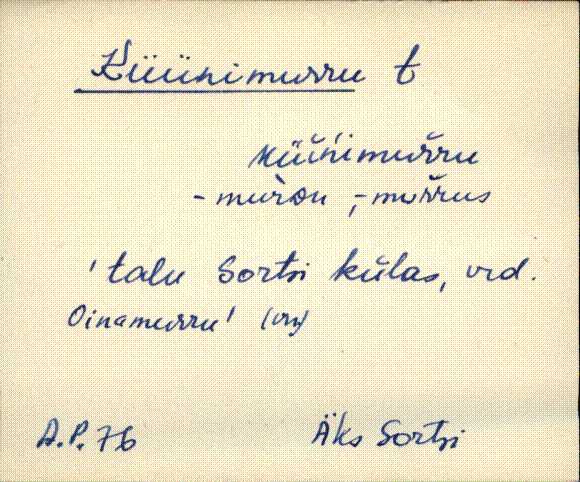 Küünimurru t
küün̆imuřru
-muròu, -muřrus
'talu Sortsi külas, vrd.
Oinamurru' (vn)
A.P. 76 Äks Sortsi